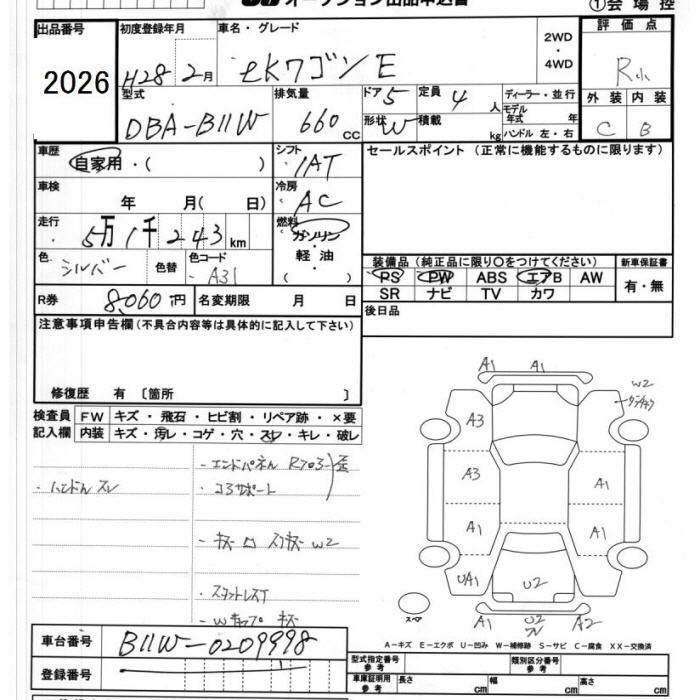 オークション出品申込書
①会場控
出品番号 2026
初度登録年月 H28 2月
車名・グレード eKワゴンE
2WD・4WD
評価点 R
外装 内装
C B
型式 DBA-B11W
排気量 660 cc
ドア 5
定員 4 人
形状 W
積載 kg
ディーラー・並行
モデル年式 年
ハンドル 左・右
車歴 自家用・( )
シフト IAT
セールスポイント (正常に機能するものに限ります)
車検 年 月( 日)
冷房 AC
走行 5万1千243km
燃料 ガソリン・軽油・( )
色 シルバー
色替
色コード A31
装備品 (純正品に限り○をつけてください)
新車保証書
PS PW ABS エアB AW
有・無
SR ナビ TV カワ
R券 8,060円
名変期限 月 日
後日品
注意事項申告欄(不具合内容等は具体的に記入して下さい)
修復歴 有 〔箇所 〕
検査員記入欄
FW キズ・飛石・ヒビ割・リペア跡・×要
内装 キズ・汚レ・コゲ・穴・スレ・キレ・破レ
・ハンドル スレ
・エンドパネル
・コアサポート
W2
・スタットレス
A1 A1
W2
A3
A3 A1
A1 A1
UA1 U2
スペア
A1 U2 A2
A-キズ E-エクボ U-凹み W-補修跡 S-サビ C-腐食 XX-交換済
車台番号 B11W-0209998
登録番号
型式指定番号 参考
類別区分番号 参考
車庫証明用 参考
長さ cm 幅 cm 高さ cm